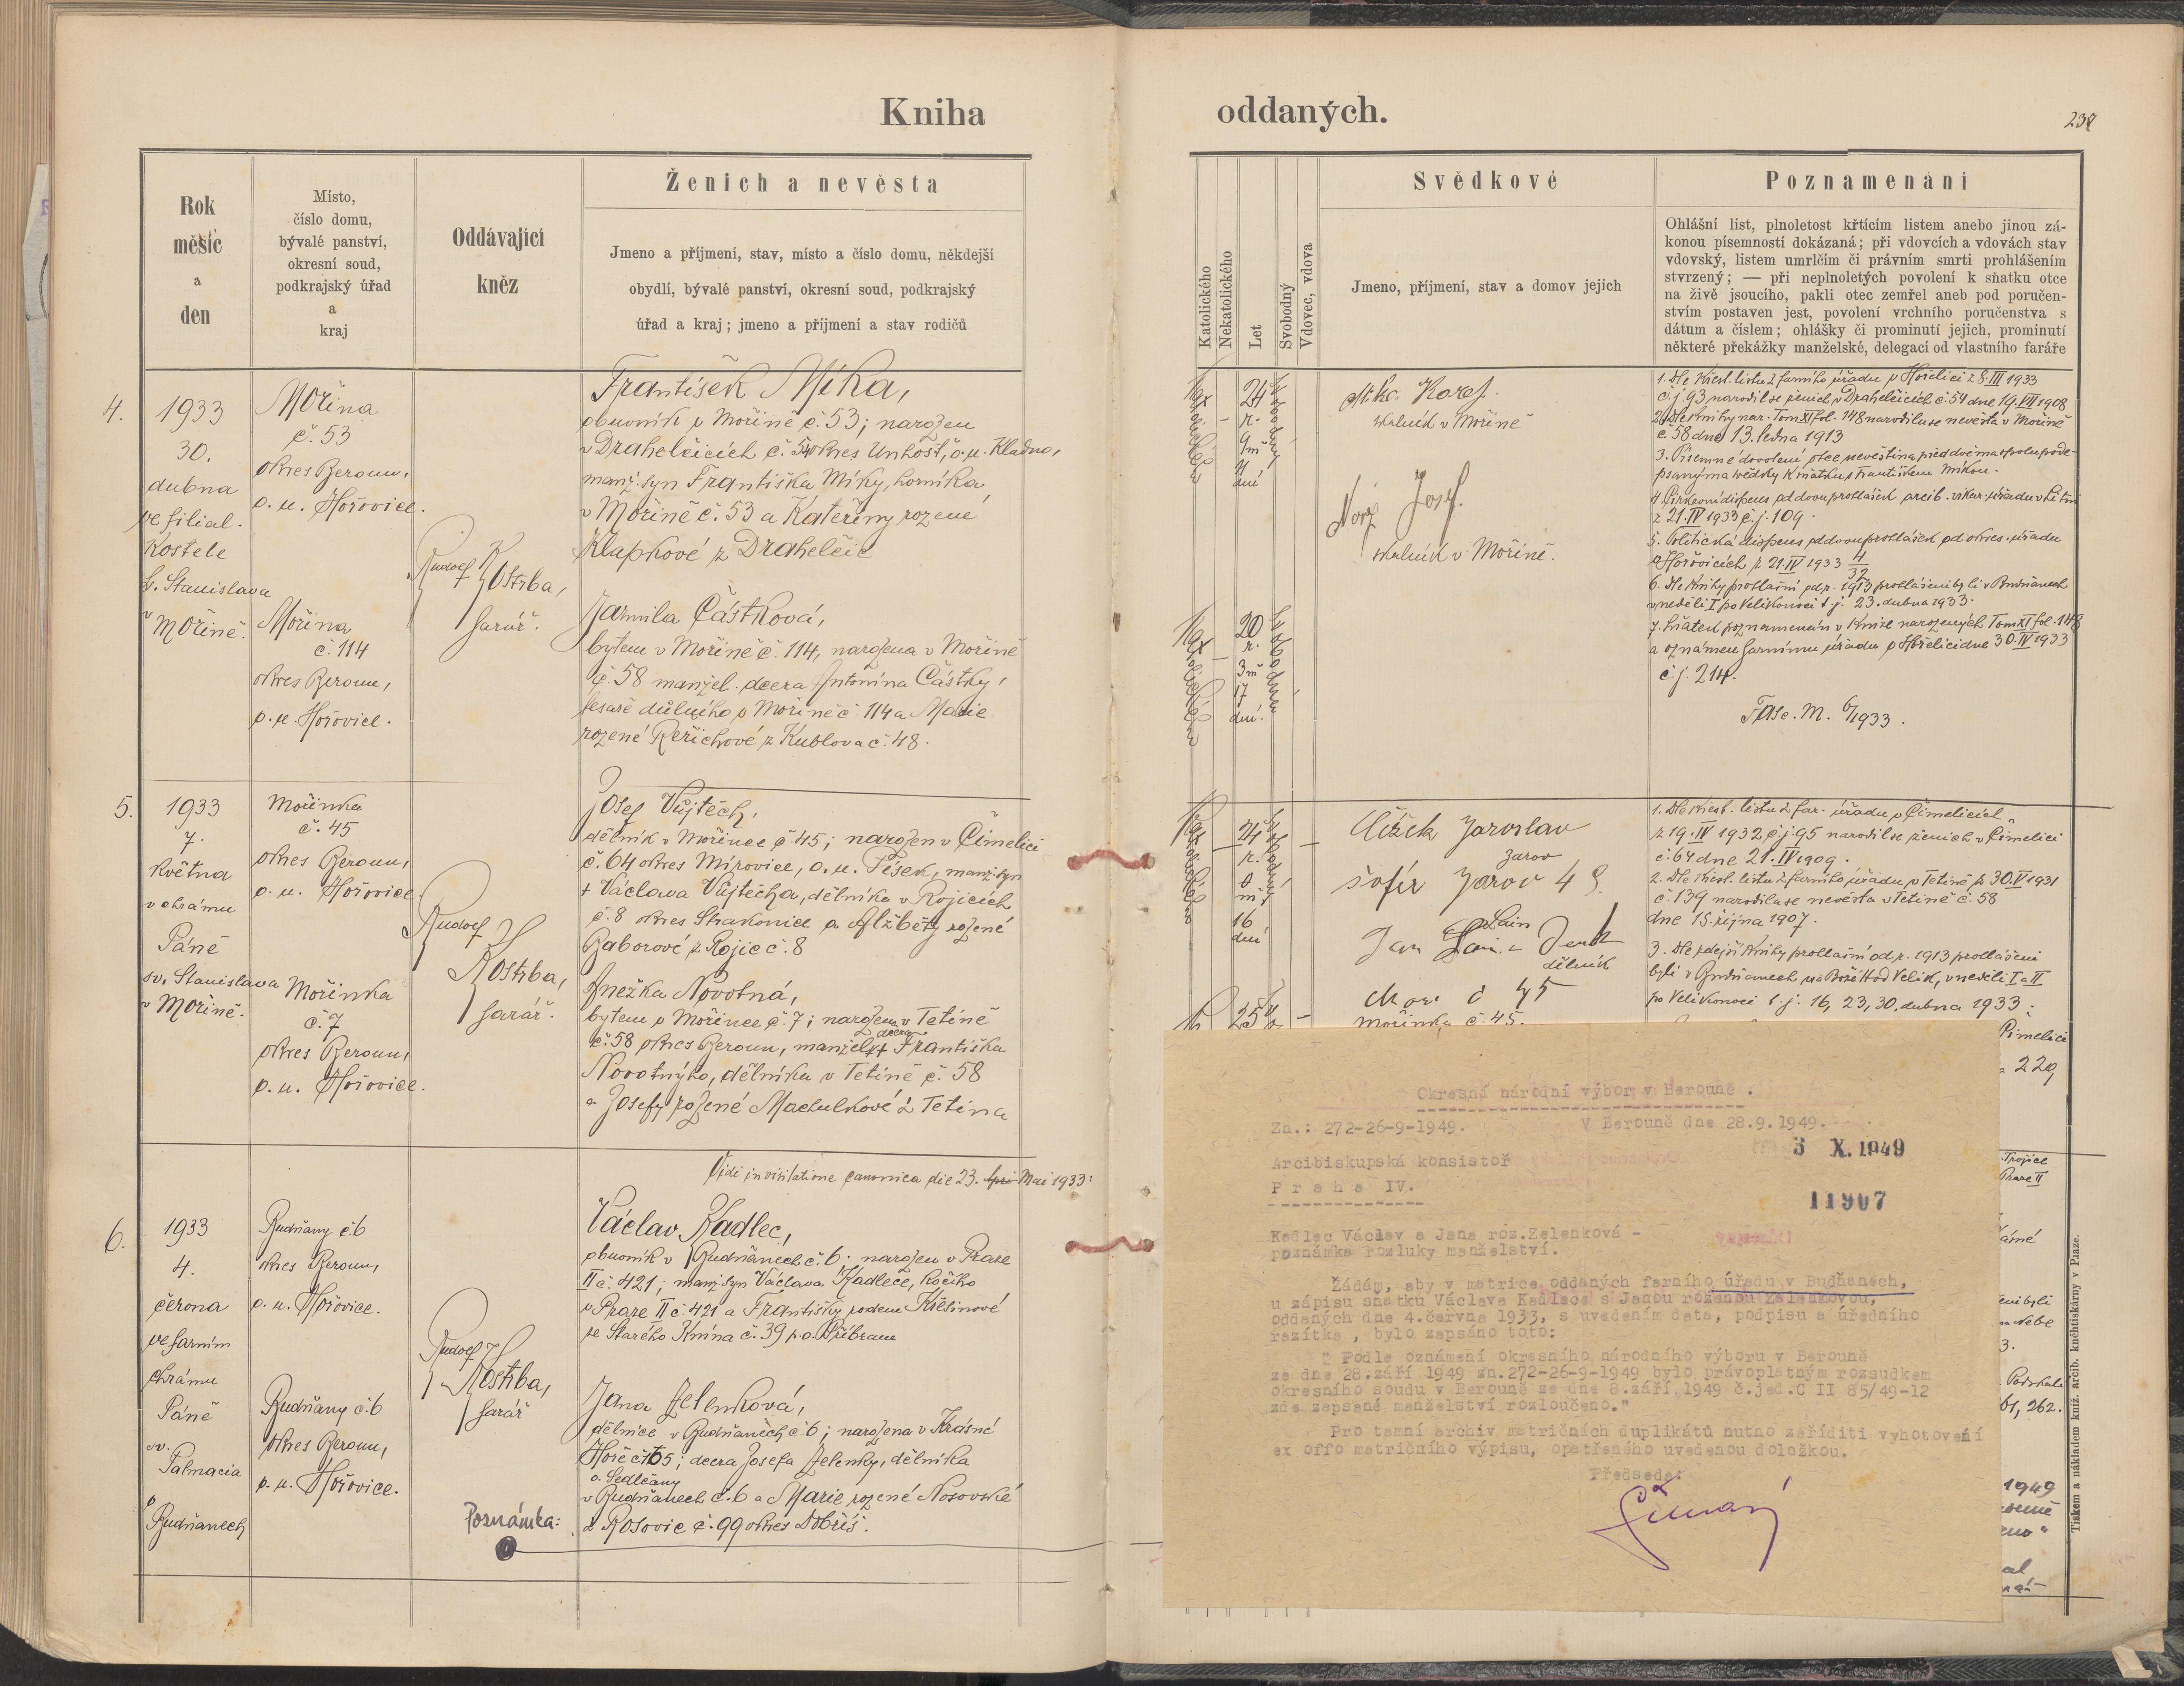 Kniha
oddaných.
Rok
měsíc
a
den
Místo,
číslo domu,
bývalé panství,
okresní soud,
podkrajský úřad
a
kraj
Oddávající
kněz
Ženich a nevěsta
Jmeno a příjmení, stav, místo a číslo domu, někdejší
obydlí, bývalé panství, okresní soud, podkrajský
úřad a kraj; jmeno a příjmení a stav rodičů
4.
1933
30.
dubna
ve filial.
kostele
sv. Stanislava
v Mořině.
Mořina
č. 53
okres Beroun,
o. u. Hořovice.
Mořina
č. 114
okres Beroun,
o. u. Hořovice.
Rudolf Kostrba,
farář.
František Míka,
obuvník v Mořině č. 53; narozen
v Drahelčicích č. 54 okres Unhošť, o. u. Kladno,
manž. syn Františka Míky, horníka
v Mořině č. 53 a Kateřiny rozené
Klapkové z Drahelčic
Jarmila Částková,
bytem v Mořině č. 114, narozena v Mořině
č. 58 manžel. dcera Antonína Částky,
tesaře důlního v Mořině č. 114 a Marie
rozené Reřichové z Kublova č. 48.
5.
1933
7.
května
v chrámu
Páně
sv. Stanislava
v Mořině.
Mořinka
č. 45
okres Beroun,
o. u. Hořovice
Mořinka
č. 7
okres Beroun,
o. u. Hořovice.
Rudolf
Kostrba,
farář.
Josef Vojtěch,
dělník v Mořince č. 45; narozen v Čimelici
č. 64 okres Mirovice, o. u. Písek, manž. syn
+ Václava Vojtěcha, dělníka v Rojicích
č. 8 okres Strakonice a Alžběty rozené
Gaborové z Rojic č. 8
Anežka Novotná,
bytem v Mořince č. 7; narozena v Tetíně
č. 58 okres Beroun, manžel. dcera + Františka
Novotného, dělníka v Tetíně č. 58
a Josefy rozené Machulkové z Tetína
Vidi in visitatione canonica die 23. Mai 1933:
6.
1933
4.
června
ve farním
chrámu
Páně
sv.
Palmacia
v
Budňanech
Budňany č. 6
okres Beroun,
o. u. Hořovice.
Budňany č. 6
okres Beroun,
o. u. Hořovice.
Rudolf
Kostrba,
farář
Václav Kadlec,
obuvník v Budňanech č. 6; narozen v Praze
II č. 421; manž. syn Václava Kadlece, kočího
v Praze II č. 421 a Františky rodem Křesinové
ze Starého Knína č. 39 p. o. Příbram
Jana Zelenková,
dělnice v Budňanech č. 6; narozena v Krásné
Hoře č. 105; dcera Josefa Zelenky, dělníka
o. Sedlčany
v Budňanech č. 6 a Marie rozené Nosovské
z Rosovic č. 99 okres Dobříš.
Poznámka:
Katolického
Nekatolického
Let
Svobodný
Vdovec, vdova
Svědkové
Jmeno, příjmení, stav a domov jejich
Poznamenání
Ohlášní list, plnoletost křtícím listem anebo jinou zá-
konou písemností dokázaná; při vdovcích a vdovách stav
vdovský, listem umrlčím či právním smrti prohlášením
stvrzený; — při neplnoletých povolení k sňatku otce
na živě jsoucího, pakli otec zemřel aneb pod poručen-
stvím postaven jest, povolení vrchního poručenstva s
dátum a číslem; ohlášky či prominutí jejich, prominutí
některé překážky manželské, delegací od vlastního faráře
24
r.
9 m
11
dní
20
r.
3 m
17
dní.
Josef.
skalník v Mořině
Josef.
skalník v Mořině.
1. Dle křest. listu z farního úřadu v Hořelici z 8. III 1933
č. j. 93 narodil se ženich v Drahelčicích č. 54 dne 19. VII 1908
2. Dle knihy nar. Tom XI fol. 148 narodila se nevěsta v Mořině
č. 58 dne 13. ledna 1913
3. Písemné dovolení otce nevěstina před dvěma spolupode-
psanýma svědky k sňatku s Františkem Míkou.
4. Církevní dispens od dvou prohlášek arcib. vikar. úřadu v Litni
z 21. IV 1933 č. j. 109.
5. Politická dispens od dvou prohlášek od okres. úřadu
v Hořovicích z 21. IV 1933 4/32
6. Dle knihy prohlášní od r. 1913 prohlášeni byli v Budňanech
v neděli I po Velikonoci t. j. 23. dubna 1933.
7. Sňatek poznamenán v knize narozených Tom XI fol. 148
a oznámen farnímu úřadu v Hořelici dne 30. IV 1933
č. j. 214.
Fasc. M. 6/1933.
24
r.
0
měs.
16
dní
25
Čížek Jaroslav
Jarov
šofér Jarov 48
Jan
dělník
č 45
Mořinka č. 45.
1. Dle křest. listu z far. úřadu v Čimelicích
z 19. IV 1932 č. j. 95 narodil se ženich v Čimelici
č. 64 dne 21. IV 1909.
2. Dle křest. listu z farního úřadu v Tetíně z 30. IV 1931
č. 139 narodila se nevěsta v Tetíně č. 58
dne 15. října 1907.
3. Dle zdejší knihy prohlášní od r. 1913 prohlášeni
byli v Budňanech na Boží Hod Velik., v neděli I a II
po Velikonoci t. j. 16, 23, 30. dubna 1933:
Čimelici
229
Trojice
Praze II
262.
1949
Okresní národní výbor v Berouně.
Zn.: 272-26-9-1949. V Berouně dne 28.9.1949.
3 X. 1949
Arcibiskupská konsistoř
Praha IV.
11907
Kadlec Václav a Jana roz.Zelenková -
poznámka rozluky manželství.
Žádám, aby v matrice oddaných farního úřadu v Budňanech,
u zápisu sňatku Václava Kadlece s Janou rozenou Zelenkovou,
oddaných dne 4.června 1933, s uvedením data, podpisu a úředního
razítka , bylo zapsáno toto:
" Podle oznámení okresního národního výboru v Berouně
ze dne 28.září 1949 zn.272-26-9-1949 bylo právoplatným rozsudkem
okresního soudu v Berouně ze dne 8.září 1949 č.jed.C II 85/49-12
zde zapsané manželství rozloučeno."
Pro tamní archiv matričních duplikátů nutno zaříditi vyhotovení
ex offo matričního výpisu, opatřeného uvedenou doložkou.
Předseda:
Tiskem a nákladem kníž. arcib. knihtiskárny v Praze.